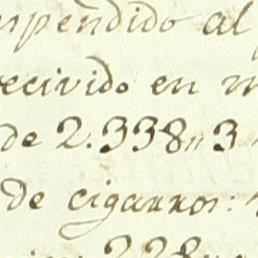 spendido al
recivido en
de 2.338,, 3
de cigarros:
228